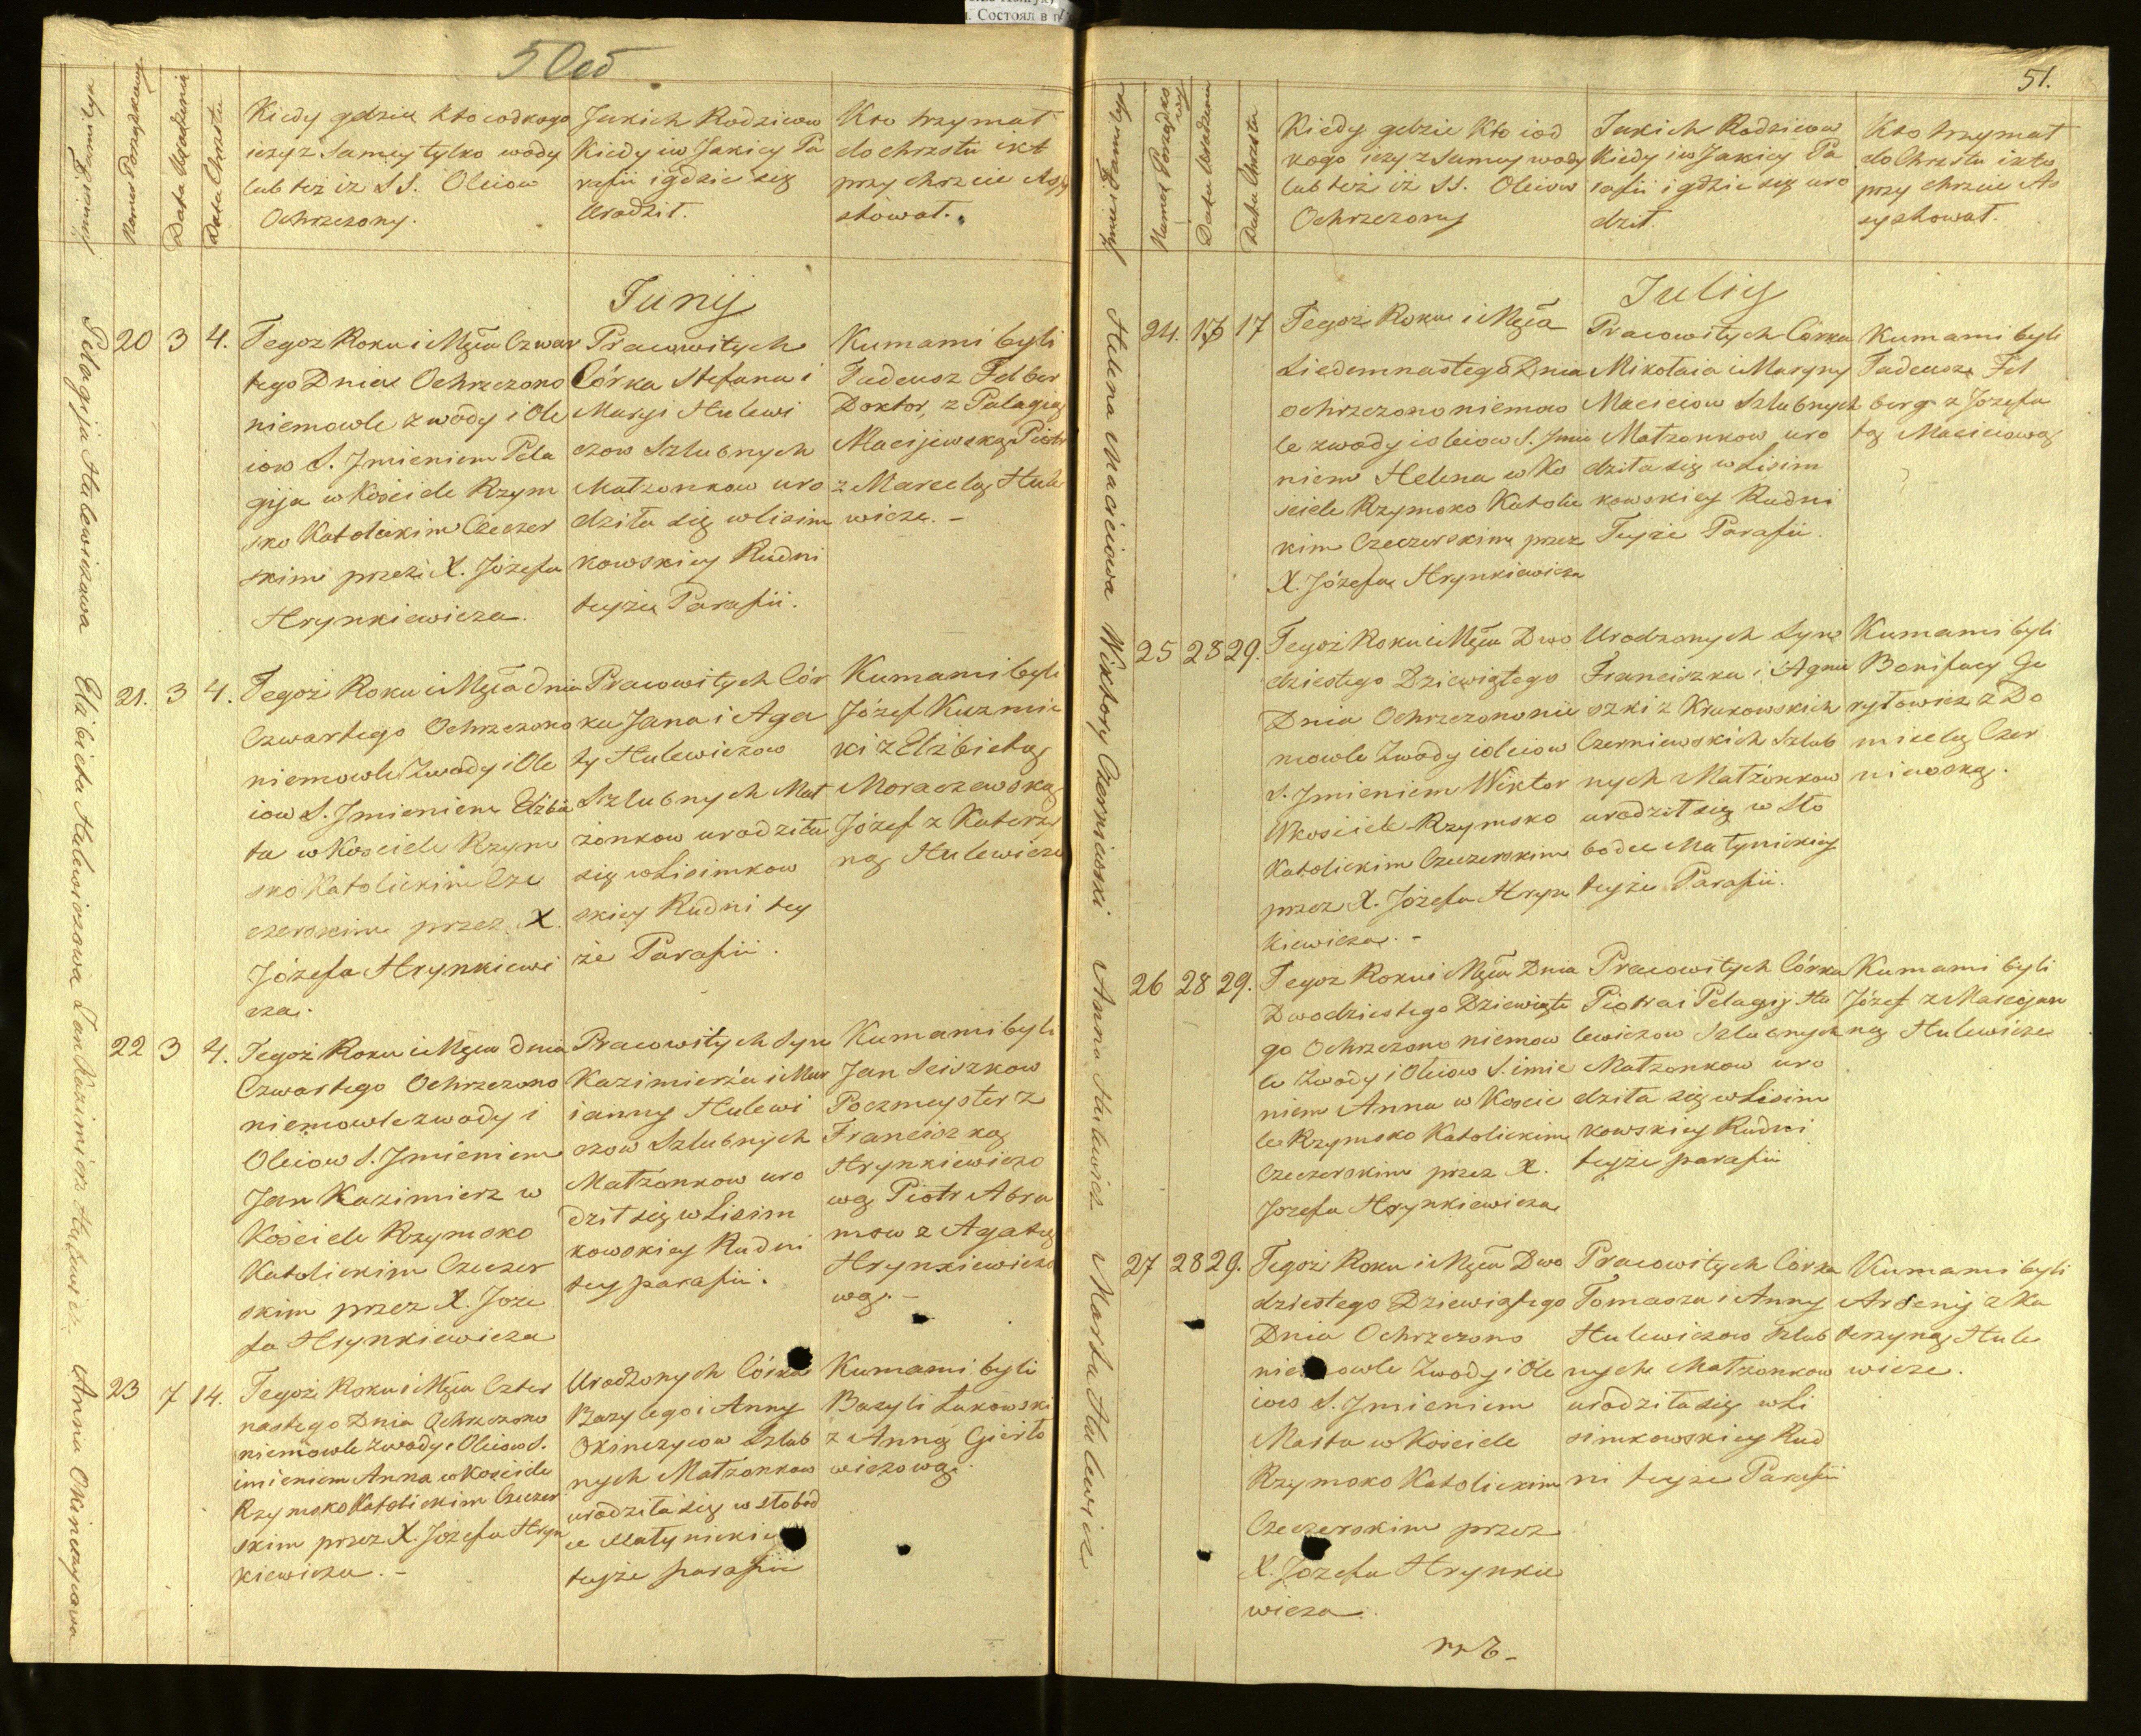 50об
Kiedy gdzie kto i od kogo
iezy z samey tylko wody
lub też iż SS. Oleiow
Ochrzczony.
Jakich Rodziców
Kiedy w Jakiey Pa
rafii i gdzie się
Urodził.
Kto trzymał
do chrztu i kt
przy chrzcie Assy
stował.
Data Urodzenia
Data Chrztu
Junij
Pelagija Hulewiczowa
20 3 4.
Tegoż Roku i Mca Czwar
tego Dnia Ochrzczono
niemowle z wody i Ole
iow S. Jmieniem Pela
gija w Kościele Rzym
sko Katolickim Czeczer
skim przez X. Józefa
Hrynkiewicza.
Pracowitych
Córka Stefana i
Maryi Hulewi
czow Szlubnych
Małzonkow uro
dziła się w Lisim
kowskiey Rudni
teyże Parafii.
Kumami byli
Tadeusz Felber
Doktor, z Palagią
Macijewską, Piotr
z Marcelą Hule
wicze. -
Elżbieta Hulewiczowa
21. 3 4.
Tegoż Roku i Mca dnia
Czwartego Ochrzczono
niemowle z wody i Ole
iow S. Jmieniem Elżbie
ta w Kościele Rzym
sko Katolickim Cze
czerskim przez X.
Józefa Hrynkiewi
cza.
Pracowitych Cór
ka Jana i Aga
ty Hulewiczow
Szlubnych Mał
żonkow urodziła
się w Lisimkow
skiey Rudni tey
że Parafii.
Kumami byli
Józef Kuzmic
ki z Elżbietą
Moraczewską
Józef z Katerzy
ną Hulewicze
Jan Kazimierz Hulewicz
22 3 4.
Tegoż Roku i Mca dnia
Czwartego Ochrzczono
niemowle z wody i
Oleiow S. Jmieniem
Jan Kazimierz w
Kościele Rzymsko
Katolickim Czeczer
skim przez X. Joze
fa Hrynkiewicza
Pracowitych Syn
Kazimierza i Mar
ianny Hulewi
czow Szlubnych
Małzonkow uro
dził się w Lisim
kowskiey Rudni
tey parafii.
Kumami byli
Jan Sciszkow
Poczmeyster z
Franciszką
Hrynkiewiczo
wą Piotr Abra
mow z Agatą
Hrynkiewiczo
wą. -
Anna Okinczycowa
23 7 14.
Tegoż Roku i Mca Czter
nastego Dnia Ochrzczono
niemowle z wody i Oleiow S.
imieniem Anna w Kościele
Rzymsko Katolickim Czeczer
skim przez X. Józefa Hryn
kiewicza. -
Urodzonych Córka
Bazylego i Anny
Okinczycow Szlub
nych Małzonkow
urodziła się w Słobod
ce Małynickiey
teyże parafii
Kumami byli
Bazyli Łukowski
z Anną Gierło
wiczową.
51.
Kiedy gdzie Kto i od
kogo iezy z samey wody
lub też iż SS. Oleiow
Ochrzczony
Jakich Rodziców
Kiedy i w Jakiey Pa
rafii i gdzie się uro
dził.
Kto trzymał
do Chrztu i kto
przy chrzcie As
systował.
Data Urodzenia
Data Chrztu
Julij
Helena Maciciowa
24. 17
Tegoż Roku i Mca
Siedemnastego Dnia
ochrzczono niemow
le z wody i oleiow S. Jmie
niem Helena w Ko
sciele Rzymsko Katolic
kim Czeczerskim przez
X. Józefa Hrynkiewicza
Pracowitych Córka
Mikołaia i Maryny
Maciciow Szlubnych
Małzonkow uro
dziła się w Lisim
kowskiey Rudni
Teyże Parafii.
Kumami byli
Tadeusz Fel
berg z Jozefa
tą Maciciową
Wiktory Czerniewski
25 28 29.
Tegoż Roku i Mca Dwo
dziestego Dziewiątego
Dnia Ochrzczono nie
mowle z wody i oleiow
S. Jmieniem Wiktor
w Kościele Rzymsko
Katolickim Czeczerskim
przez X. Józefa Hryn
kiewicza. -
Urodzonych Syn
Franciszka i Agnie
szki z Krukowskich
Czerniewskich Szlub
nych Małżonkow
urodził się w Sło
bodce Małynickiey
teyże Parafii.
Kumami byli
Bonifacy Ge
ryłowicz z Do
micelą Czer
niewską.
Anna Hulewicz
26 28 29.
Tegoz Roku i Mca Dnia
Dwodziestego Dziewiąte
go Ochrzczono niemow
le z wody i Oleiow S. imie
niem Anna w Koscie
le Rzymsko Katolickim
Czeczerskim przez X.
Jozefa Hrynkiewicza
Pracowitych Córka
Piotra i Pelagij Hu
lewiczow Szlubnych
Małzonkow uro
dziła się w Lisim
kowskiey Rudni
teyże parafii
Kumami byli
Józef z Marcijan
ną Hulewicze
Marta Hulewicz
27 28 29.
Tegoż Roku i Mca Dwo
dziestego Dziewiątego
Dnia Ochrzczono
niemowle z wody i Ole
iow S. Jmieniem
Marta w Kościele
Rzymsko Katolickim
Czeczerskim przez
X. Jozefa Hrynkie
wicza.
Pracowitych Córka
Tomasza i Anny
Hulewiczow szlub
nych Małżonkow
urodziła się w Li
simkowskiey Rud
ni teyże Parafii
Kumami byli
Arsenij z Ka
terzyną Hule
wicze.